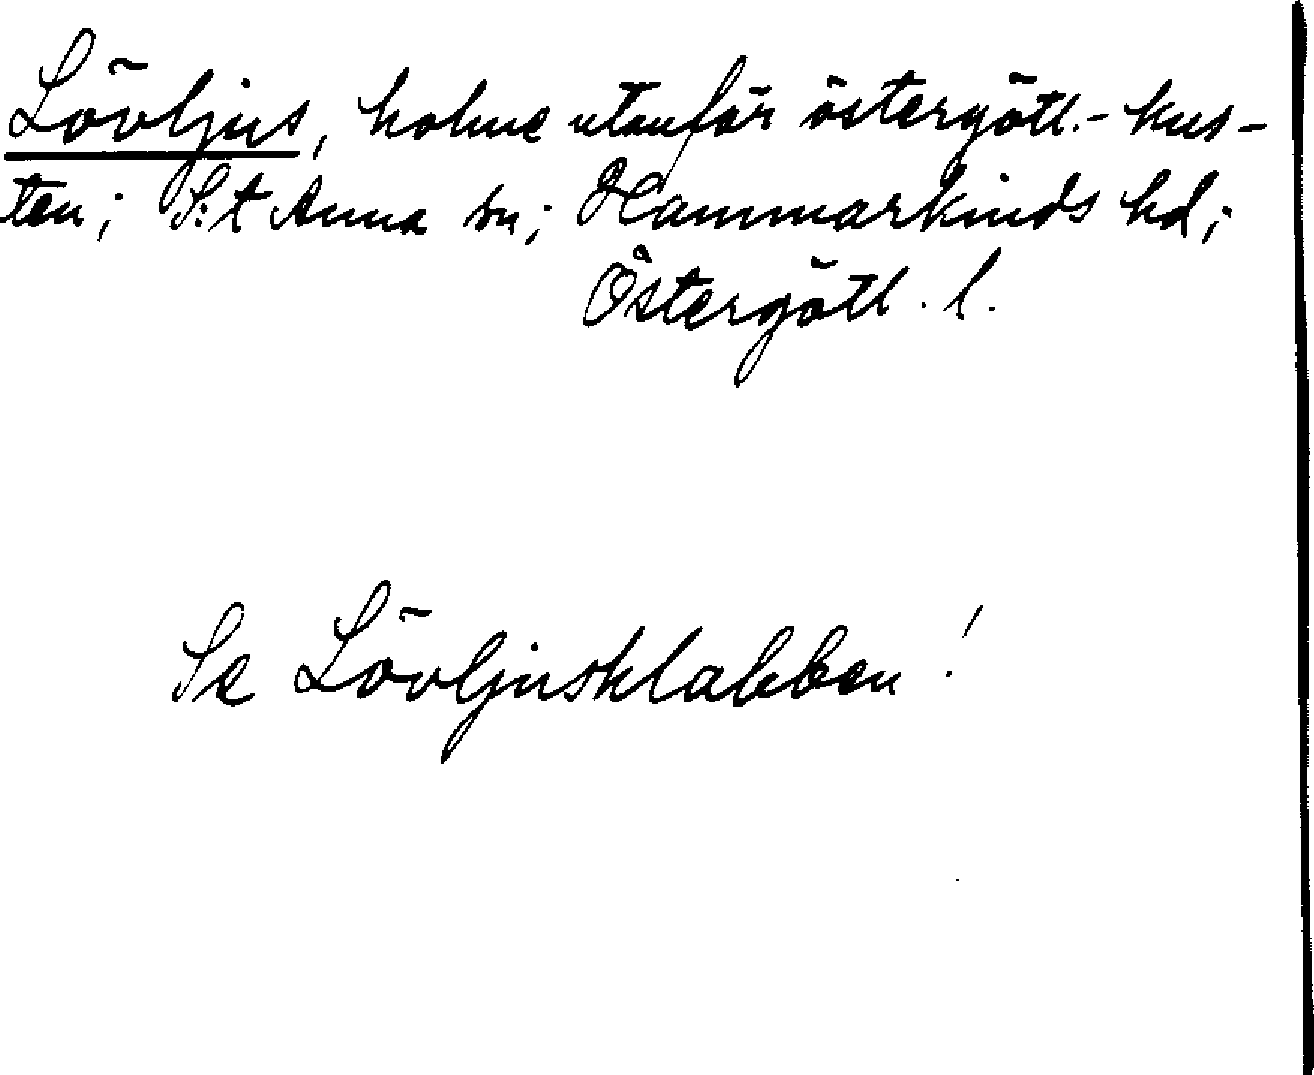 Lövljus, holme utanför östergötl.- kus-
ten; S:t Anna sn; Hammarkinds hd;
Östergötl. l.
Se Lövljusklabben!